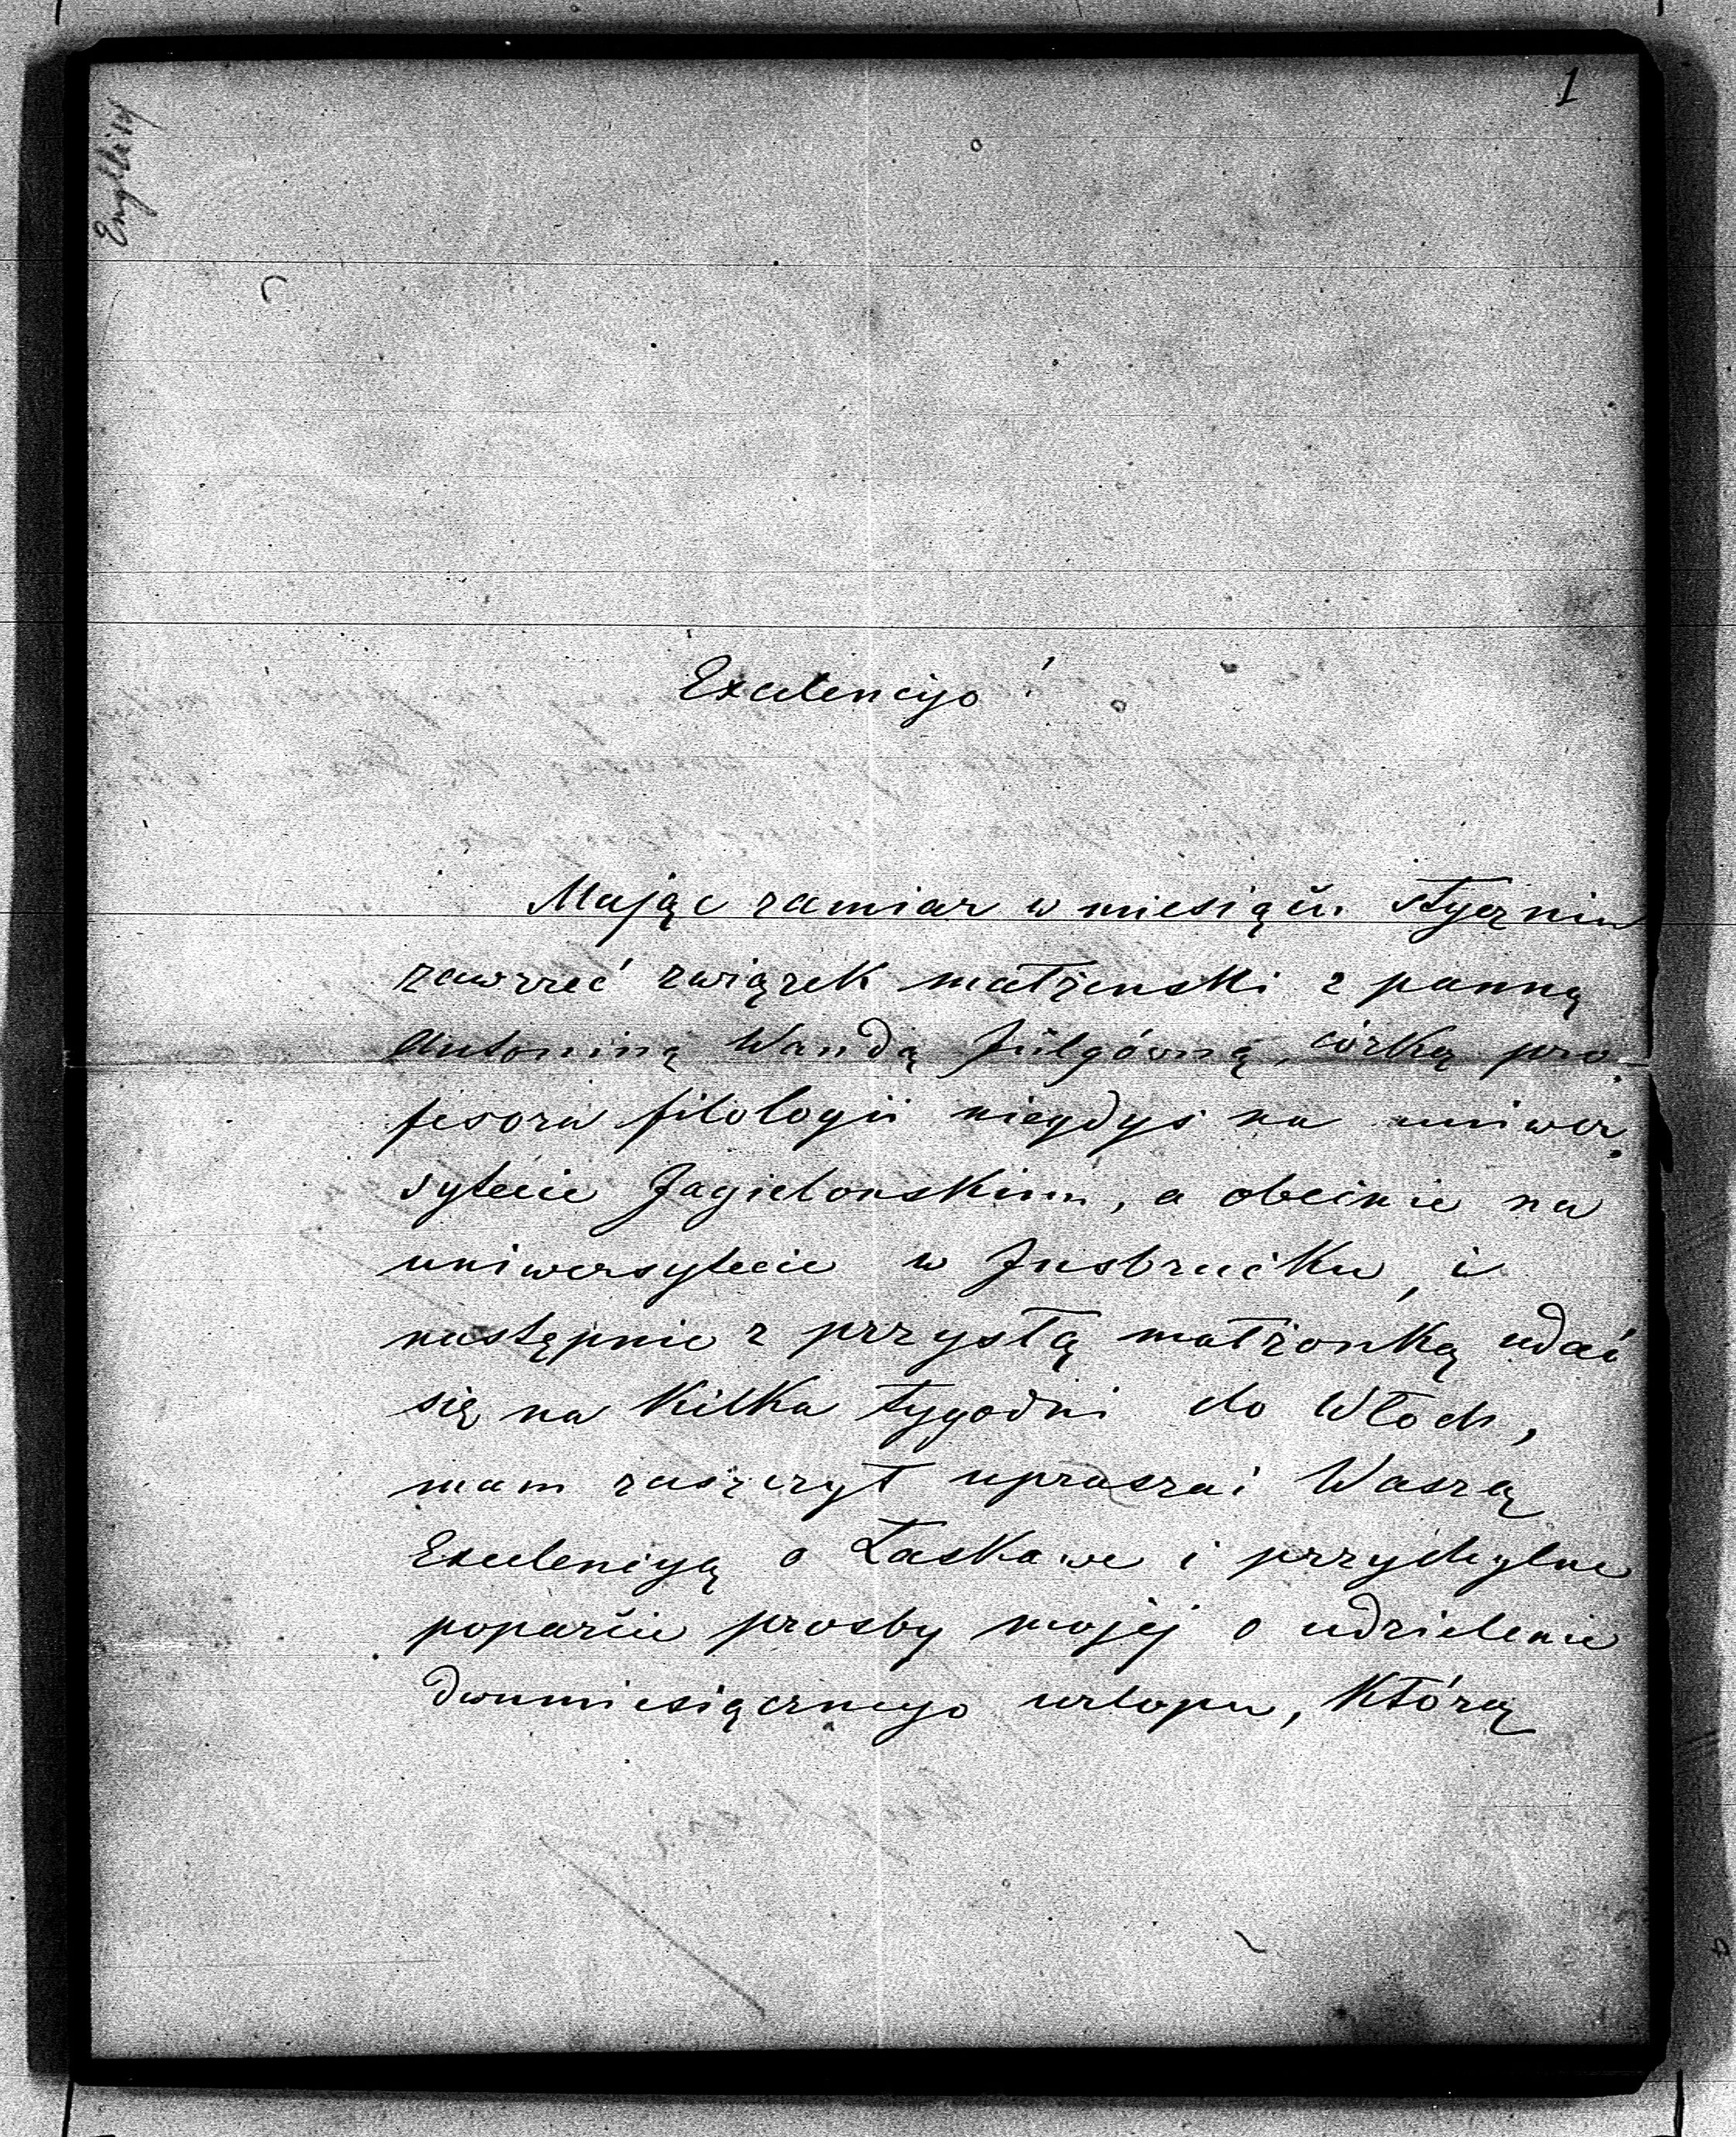 1
Excelencyo!
Mając zamiar w miesiącu styczniu
zawrzeć związek małżenski z panną
Antoniną Wandą Jülgówną, córką pro-
fesora filologii niegdyś na uniwer-
sytecie Jagielonskim, a obecnie na
uniwersytecie w Insbrucku, i
następnie z przyszłą małżonką udać
się na kilka tygodni do Włoch,
mam zaszczyt upraszać Waszą
Excelencyą o Łaskawe i przychylne
poparcie prosby mojej o udzielenie
dwumiesięcznego urlopu, którą